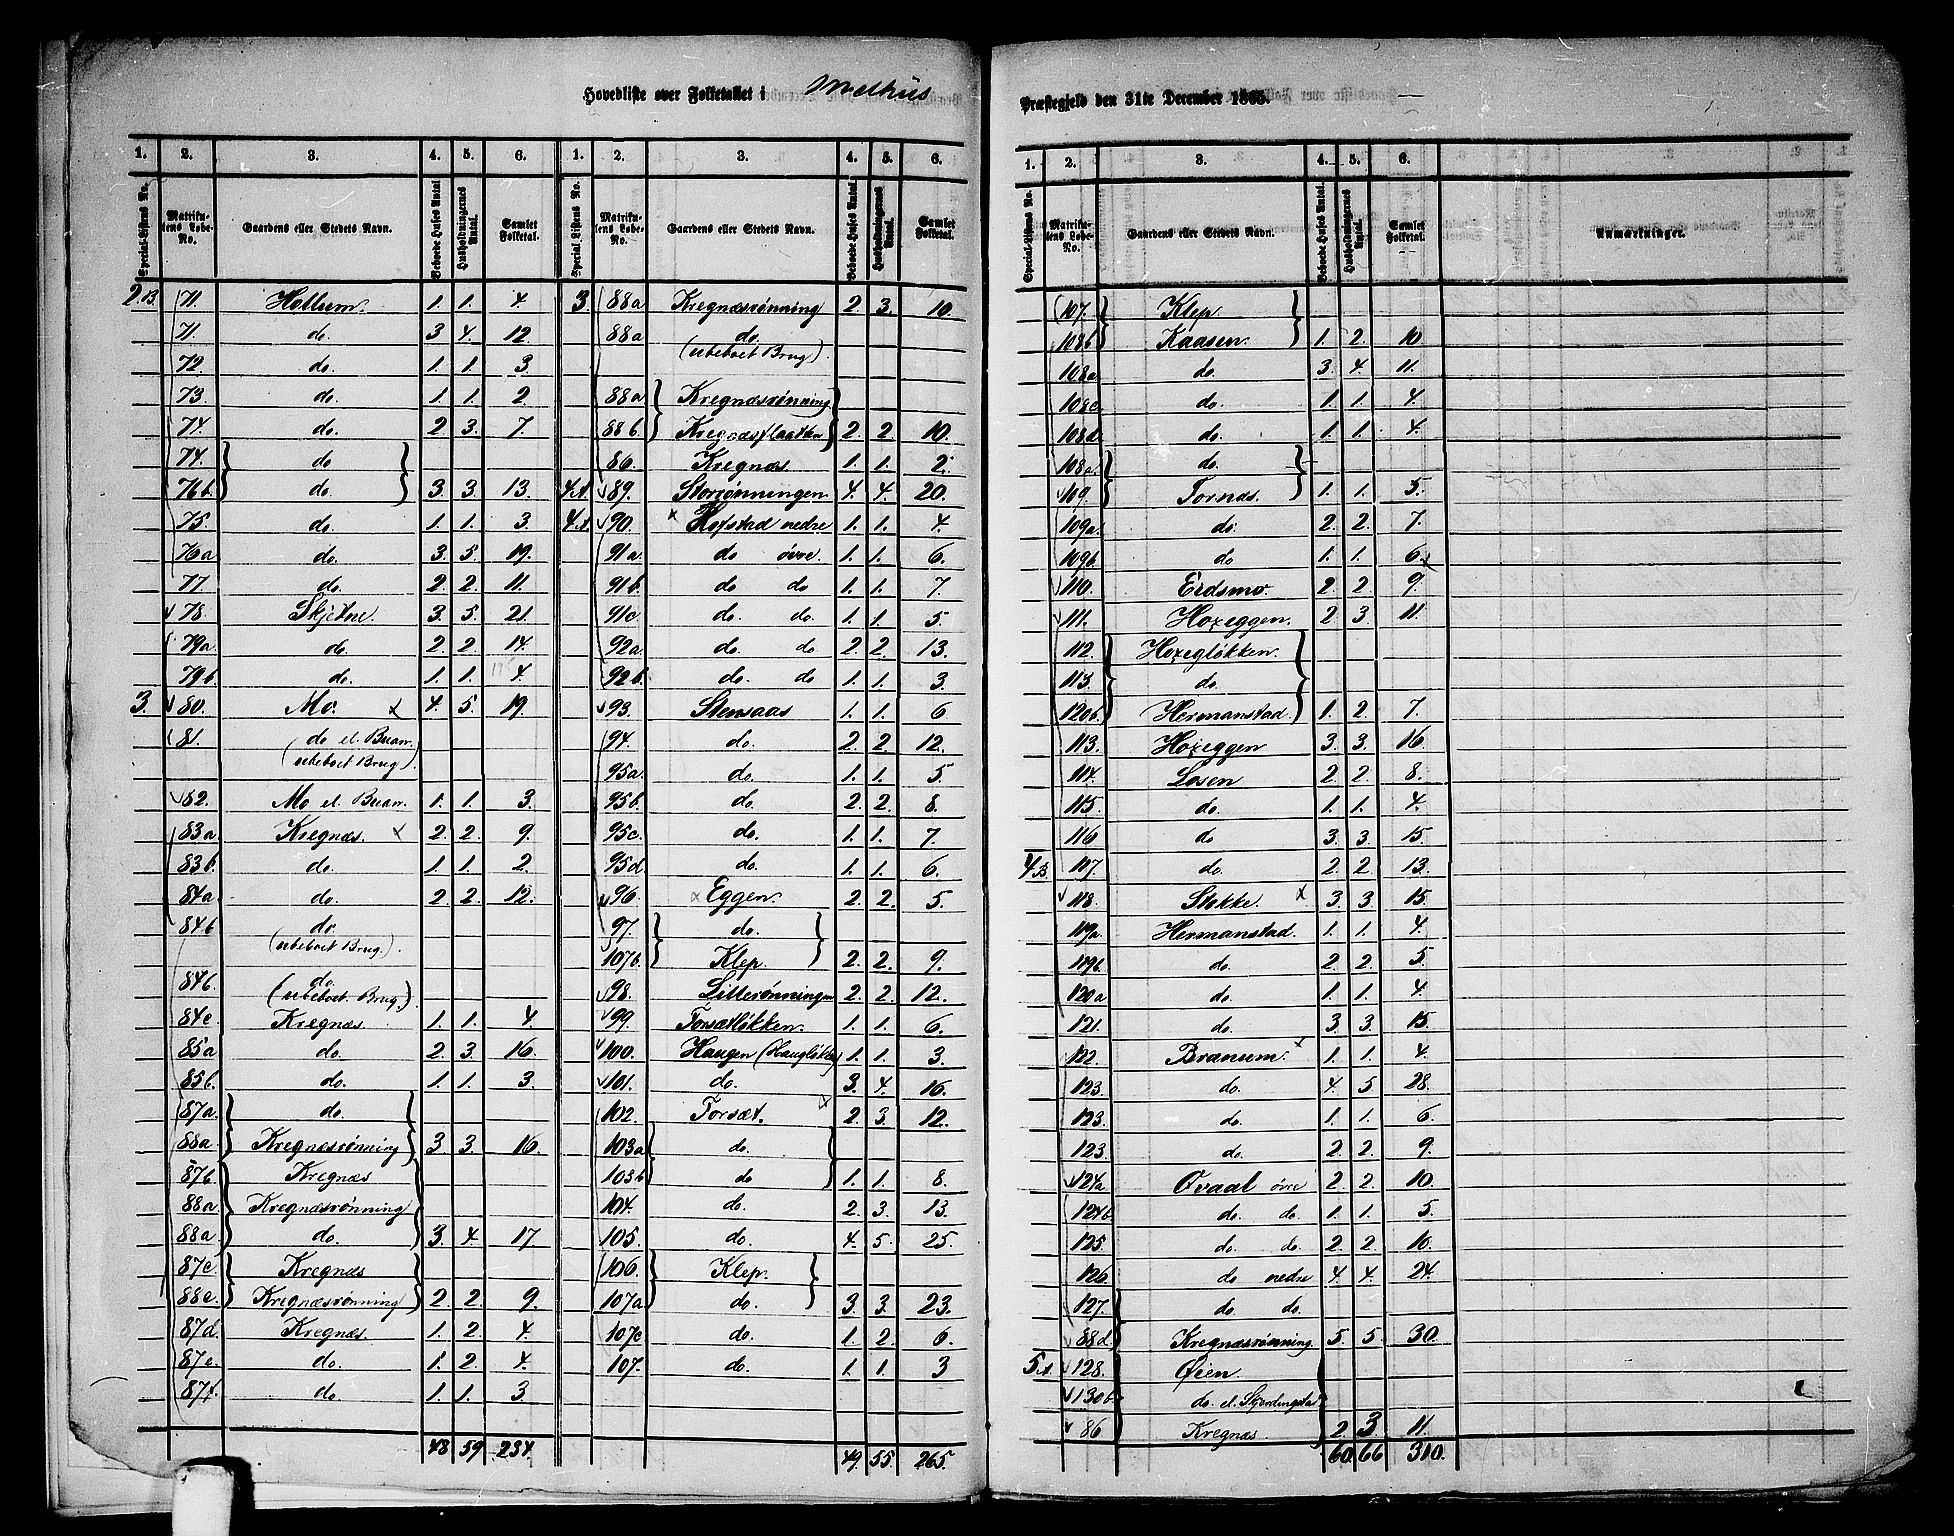 Hovedliste over Folketallet i Melhus
Præstegjeld den 31te December 1865.
1. 2. 3. 4. 5. 6. 1. 2. 3. 4. 5. 6.
Special-Listens No. Matrikulens Løbe-No. Gaardens eller Stedets Navn. Beboede Huses Antal Husholdningernes Antal. Samlet Folketal. Special-Listens No. Matrikulens Løbe-No. Gaardens eller Stedets Navn. Beboede Huses Antal. Husholdningernes Antal. Samlet Folketal.
2.B 71. Hollum. 1. 1. 4.
71. do. 3 4. 12.
72. do. 1. 1. 3.
73. do. 1. 1. 2.
74. do. 2 3. 7.
74. do
76b. do. 3. 3. 13.
75. do. 1. 1. 3.
76a do. 3. 5. 19.
77. do. 2. 2. 11.
78. Skjetne. 3. 5. 21.
79a do. 2. 2. 14.
79b. do. 1. 1. 4.
3. 80. Mo. x 4. 5. 19.
81. do el. Buan.
(ubeboet Brug).
82. Mo el. Buan. 1. 1. 3.
83a Kregnæs. x 2. 2. 9.
83b. do. 1. 1. 2.
84a do. 2 2. 12.
84b do.
(ubeboet Brug).
84b. do.
(ubeboet Brug.)
84c. Kregnæs. 1. 1. 4.
85a do. 2. 3. 16.
85b. do. 1. 1. 3.
87a. do.
88a. Kregnæsrønning 3 3. 16.
87b. Kregnæs
88a. Kregnæsrønning
88a. do. 3. 4. 17.
87c. Kregnæs
88c. Kregnæsrønning 2. 2. 9.
87d. Kregnæs. 1. 2. 4.
87e. do. 1. 2. 4.
87f. do. 1. 1. 3.
48 59 234.
3. 88a Kregnæsrønning 2. 3. 10.
88a do.
(ubeboet Brug).
88a Kregnæsrønning
88b. Kregnæsflaatten 2. 2. 10.
86. Kregnæs. 1. 1. 2.
4A. 89. Storrønningen 4. 4. 20.
4A 90. x Hofstad nedre 1. 1. 4.
91a do øvre. 1. 1. 6.
91b do do 1. 1. 7.
91c do. do. 1. 1. 5.
92a do. do 2. 2. 13.
92b. do. do 1. 1. 3.
93. Stensaas 1. 1. 6
94. do. 2. 2. 12.
95a. do. 1. 1. 5.
95b. do. 2. 2. 8.
95c. do. 1. 1. 7.
95d do. 1. 1. 6.
96 x Eggen. 2. 2. 5.
97. do.
107b. Klep. 2. 2. 9.
98. Lillerønningen 2. 2. 12.
99. Forsætløkken. 1. 1. 6.
100. Haugen (Haugløkken) 1. 1. 3.
101. do. 3. 4. 16.
102. Forsæt. x 2. 3. 12.
103a do.
103b do 1. 1. 8.
104. do. 2. 3. 13.
105. do. 4. 5. 25.
106. Klep.
107a do. 3. 3. 23.
107c do. 1. 2. 6.
107. do. 1. 1. 3
49. 55 265.
1. 2. 3. 4. 5. 6.
Special-Listens No. Matrikulens Løbe-No. Gaardens eller Stedets Navn. Beboede Huses Antal. Husholdningernes Antal. Samlet Folketal. Anmærkninger.
107. Klep.
108b Kaasen. 1. 2. 10
108a. do. 3. 4. 11.
108c. do. 1. 1. 4.
108d. do. 1. 1. 4.
108a. do.
109. Tornæs. 1. 1. 5.
109a. do. 2. 2. 7.
109b. do 1. 1. 6. x
110. Eidsmo. 2. 2. 9.
111. Hoxeggen. 2 3. 11.
112. Hoxegløkken.
113. do.
120b. Hermanstad. 1. 2. 7.
113. Hoxeggen 3. 3. 16
114. Losen 2. 2. 8.
115. do. 1. 1. 4.
116 do 3. 3. 15.
4B. 117. do. 2 2. 13.
118. Stokke. x 3. 3. 15.
119a Hermanstad. 1. 1. 4.
119b. do. 2. 2. 5.
120a do. 1. 1. 4.
121. do. 3 3. 15.
122. Branum. x 1. 1. 4.
123. do. 4. 5 28.
123. do. 1. 1. 6.
123. do. 2 2. 9.
124a Øvaal øvre 2. 2. 10.
124b do. do. 1. 1. 5.
125. do. do. 2. 2. 10.
126. do nedre 4. 4. 24.
127. do do.
88d. Kregnæsrønning. 5. 5. 30.
5A. 128. Øien.
130b do. el. Stjørdingstad
86 Kregnæs. 2. 3 11.
60. 66 310.